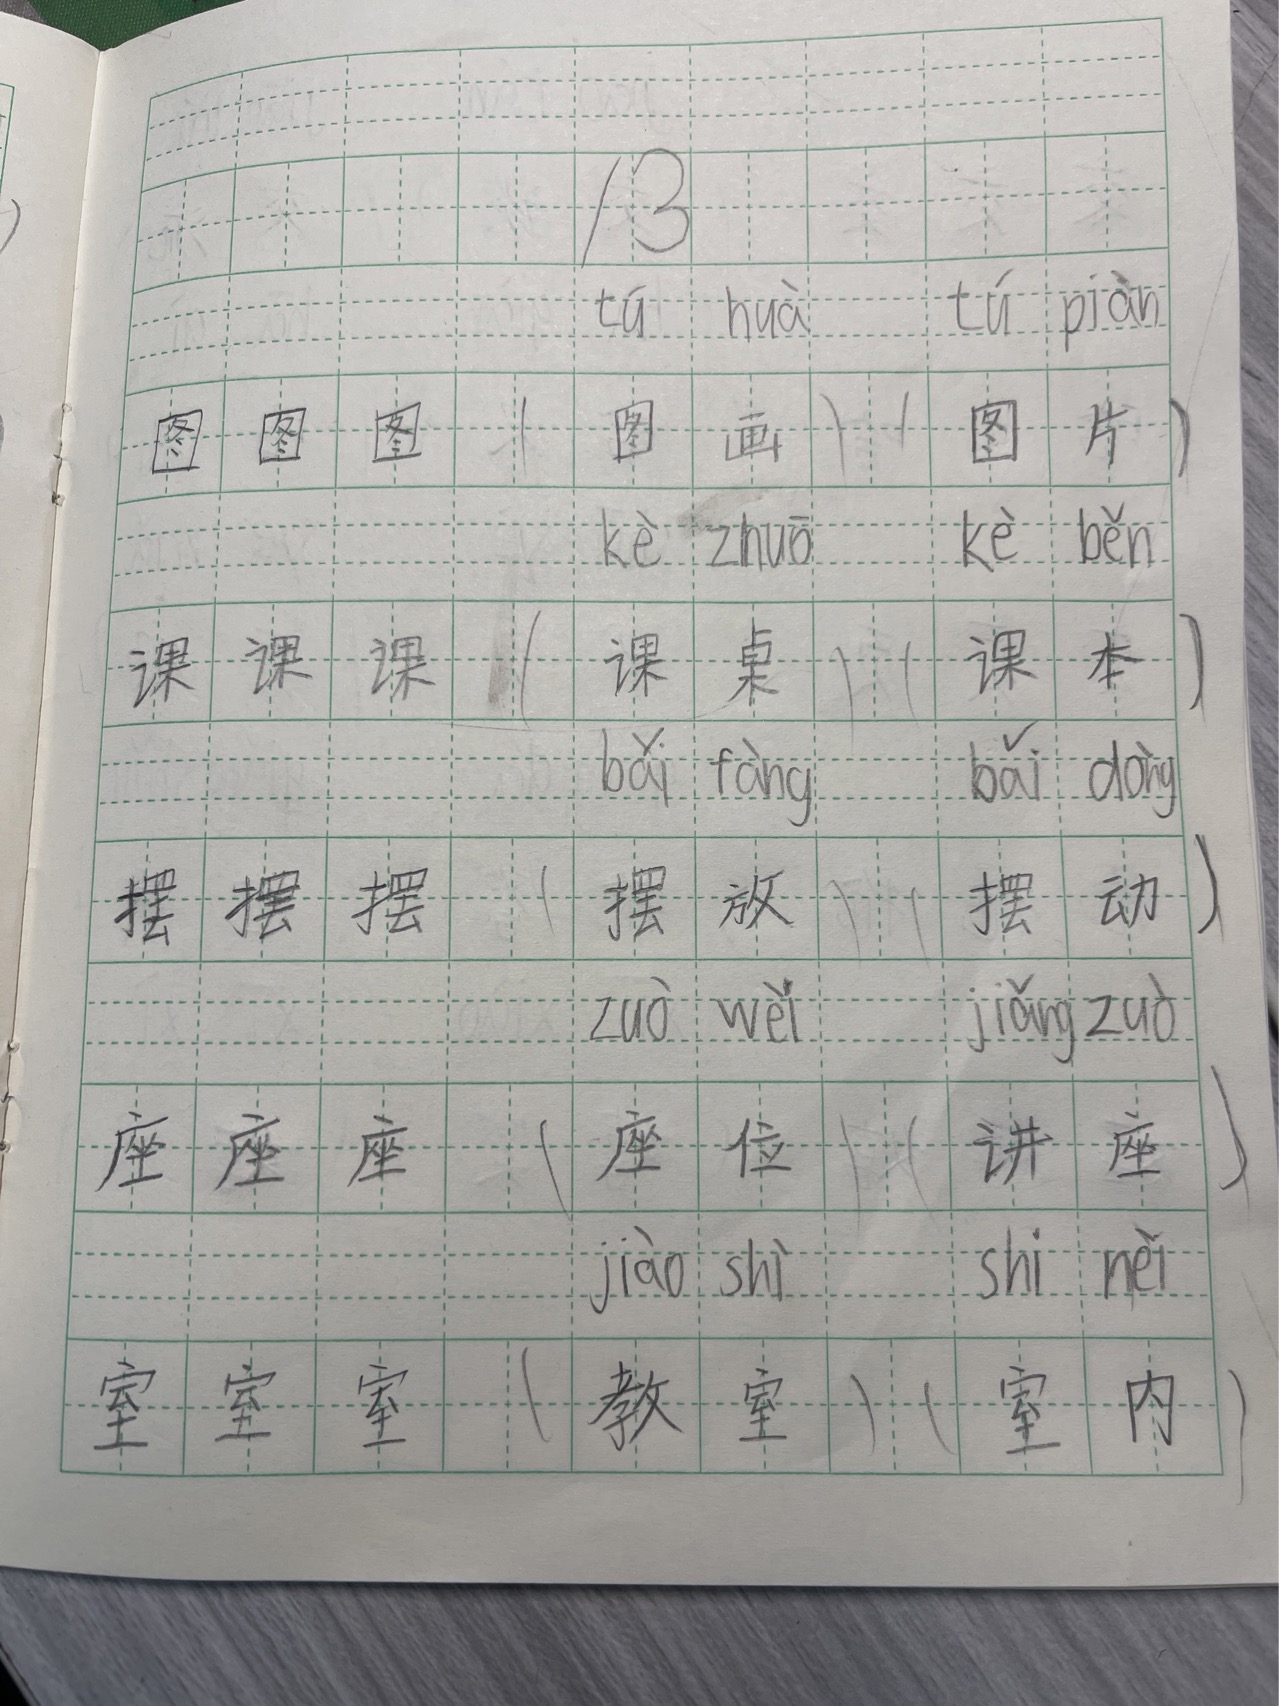 13
tú huà tú piàn
图 图 图 ( 图 画 ) ( 图 片 )
kè zhuō kè běn
课 课 课 ( 课 桌 ) ( 课 本 )
bǎi fàng bǎi dòng
摆 摆 摆 ( 摆 放 ) ( 摆 动 )
zuò wèi jiǎng zuò
座 座 座 ( 座 位 ) ( 讲 座 )
jiào shì shi nèi
室 室 室 ( 教 室 ) ( 室 内 )